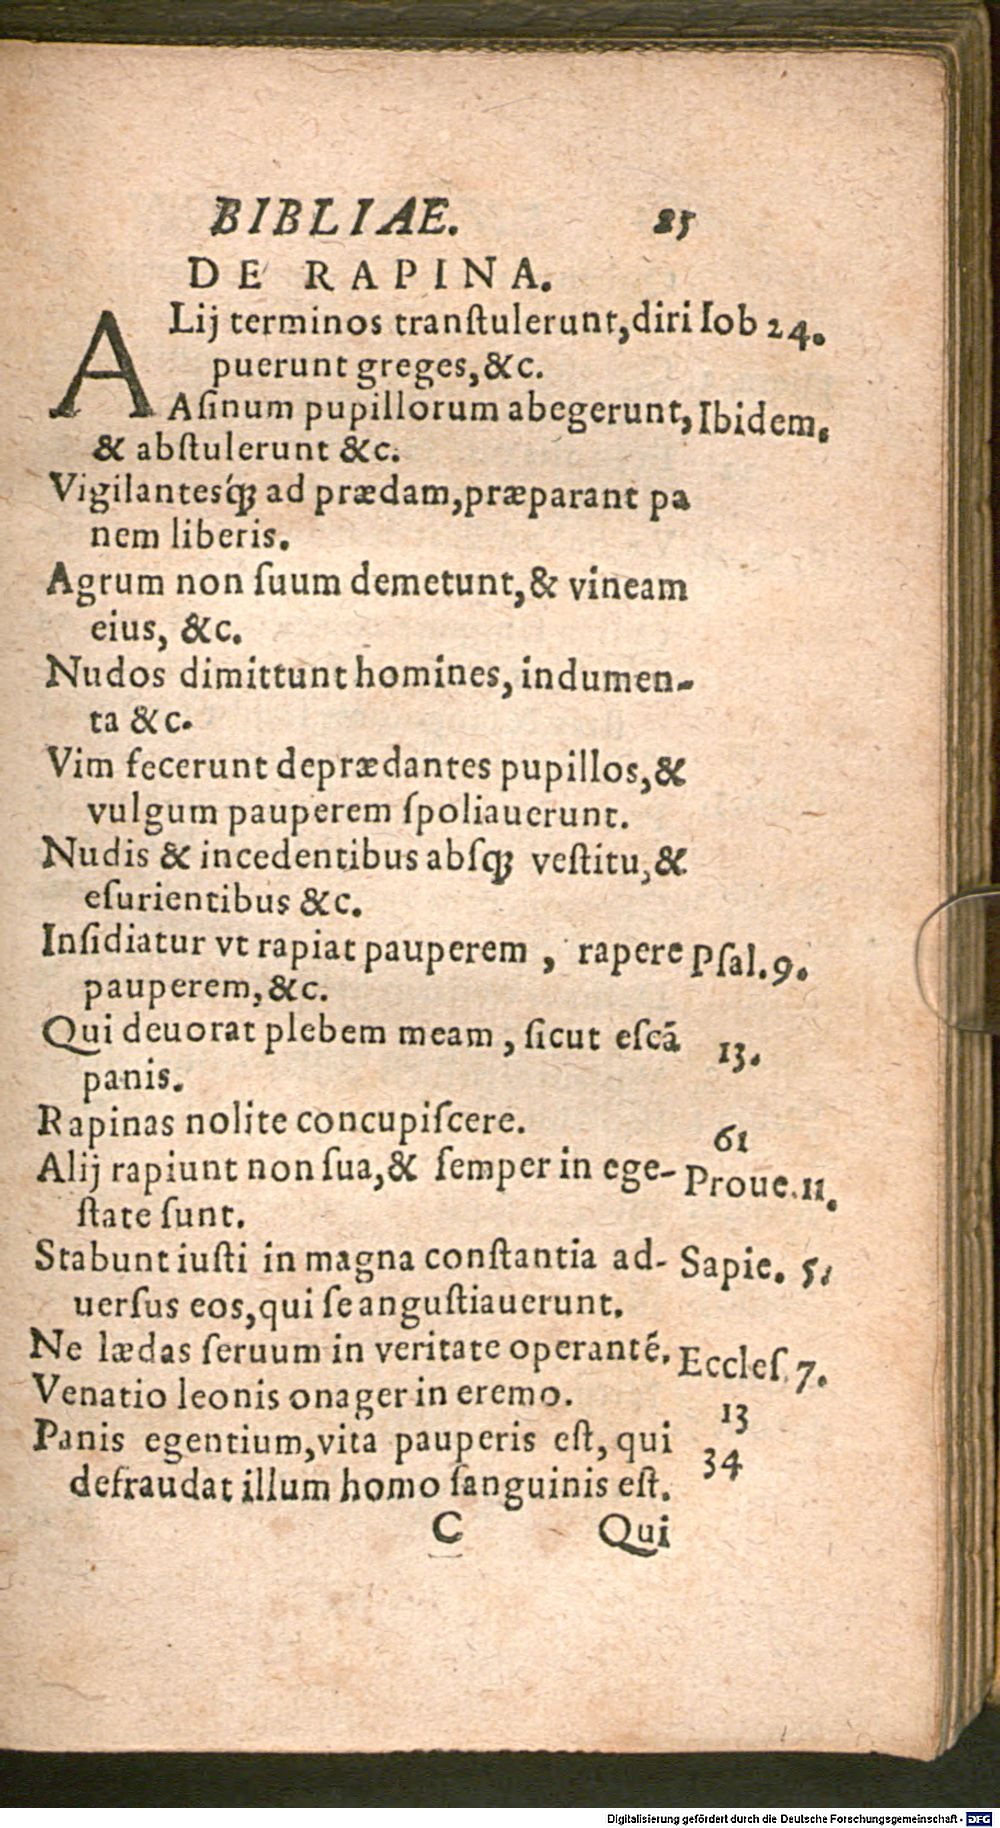 BIBLIAE. 25
DE RAPINA.
ALij terminos tranſtulerunt, diri Iob 24.
puerunt greges, &c.
Aſinum pupillorum abegerunt, Ibidem.
& abſtulerunt &c.
Vigilantesq́ꝫ ad prædam, præparant pa
nem liberis.
Agrum non ſuum demetunt, & vineam
eius, &c.
Nudos dimittunt homines, indumen-
ta &c.
Vim fecerunt deprædantes pupillos, &
vulgum pauperem ſpoliauerunt.
Nudis & incedentibus abſqꝫ veſtitu, &
eſurientibus &c.
Inſidiatur vt rapiat pauperem , rapere Pſal. 9.
pauperem, &c.
Qui deuorat plebem meam , ſicut eſcã 13.
panis.
Rapinas nolite concupiſcere. 61
Alij rapiunt non ſua, & ſemper in ege- Proue. 11.
ſtate ſunt.
Stabunt iuſti in magna conſtantia ad- Sapie. 5.
uerſus eos, qui ſe anguſtiauerunt.
Ne lædas ſeruum in veritate operanté. Eccleſ. 7.
Venatio leonis onager in eremo. 13
Panis egentium, vita pauperis eſt, qui 34
defraudat illum homo ſanguinis eſt.
C Qui
Digitalisierung gefördert durch die Deutsche Forschungsgemeinschaft - DFG